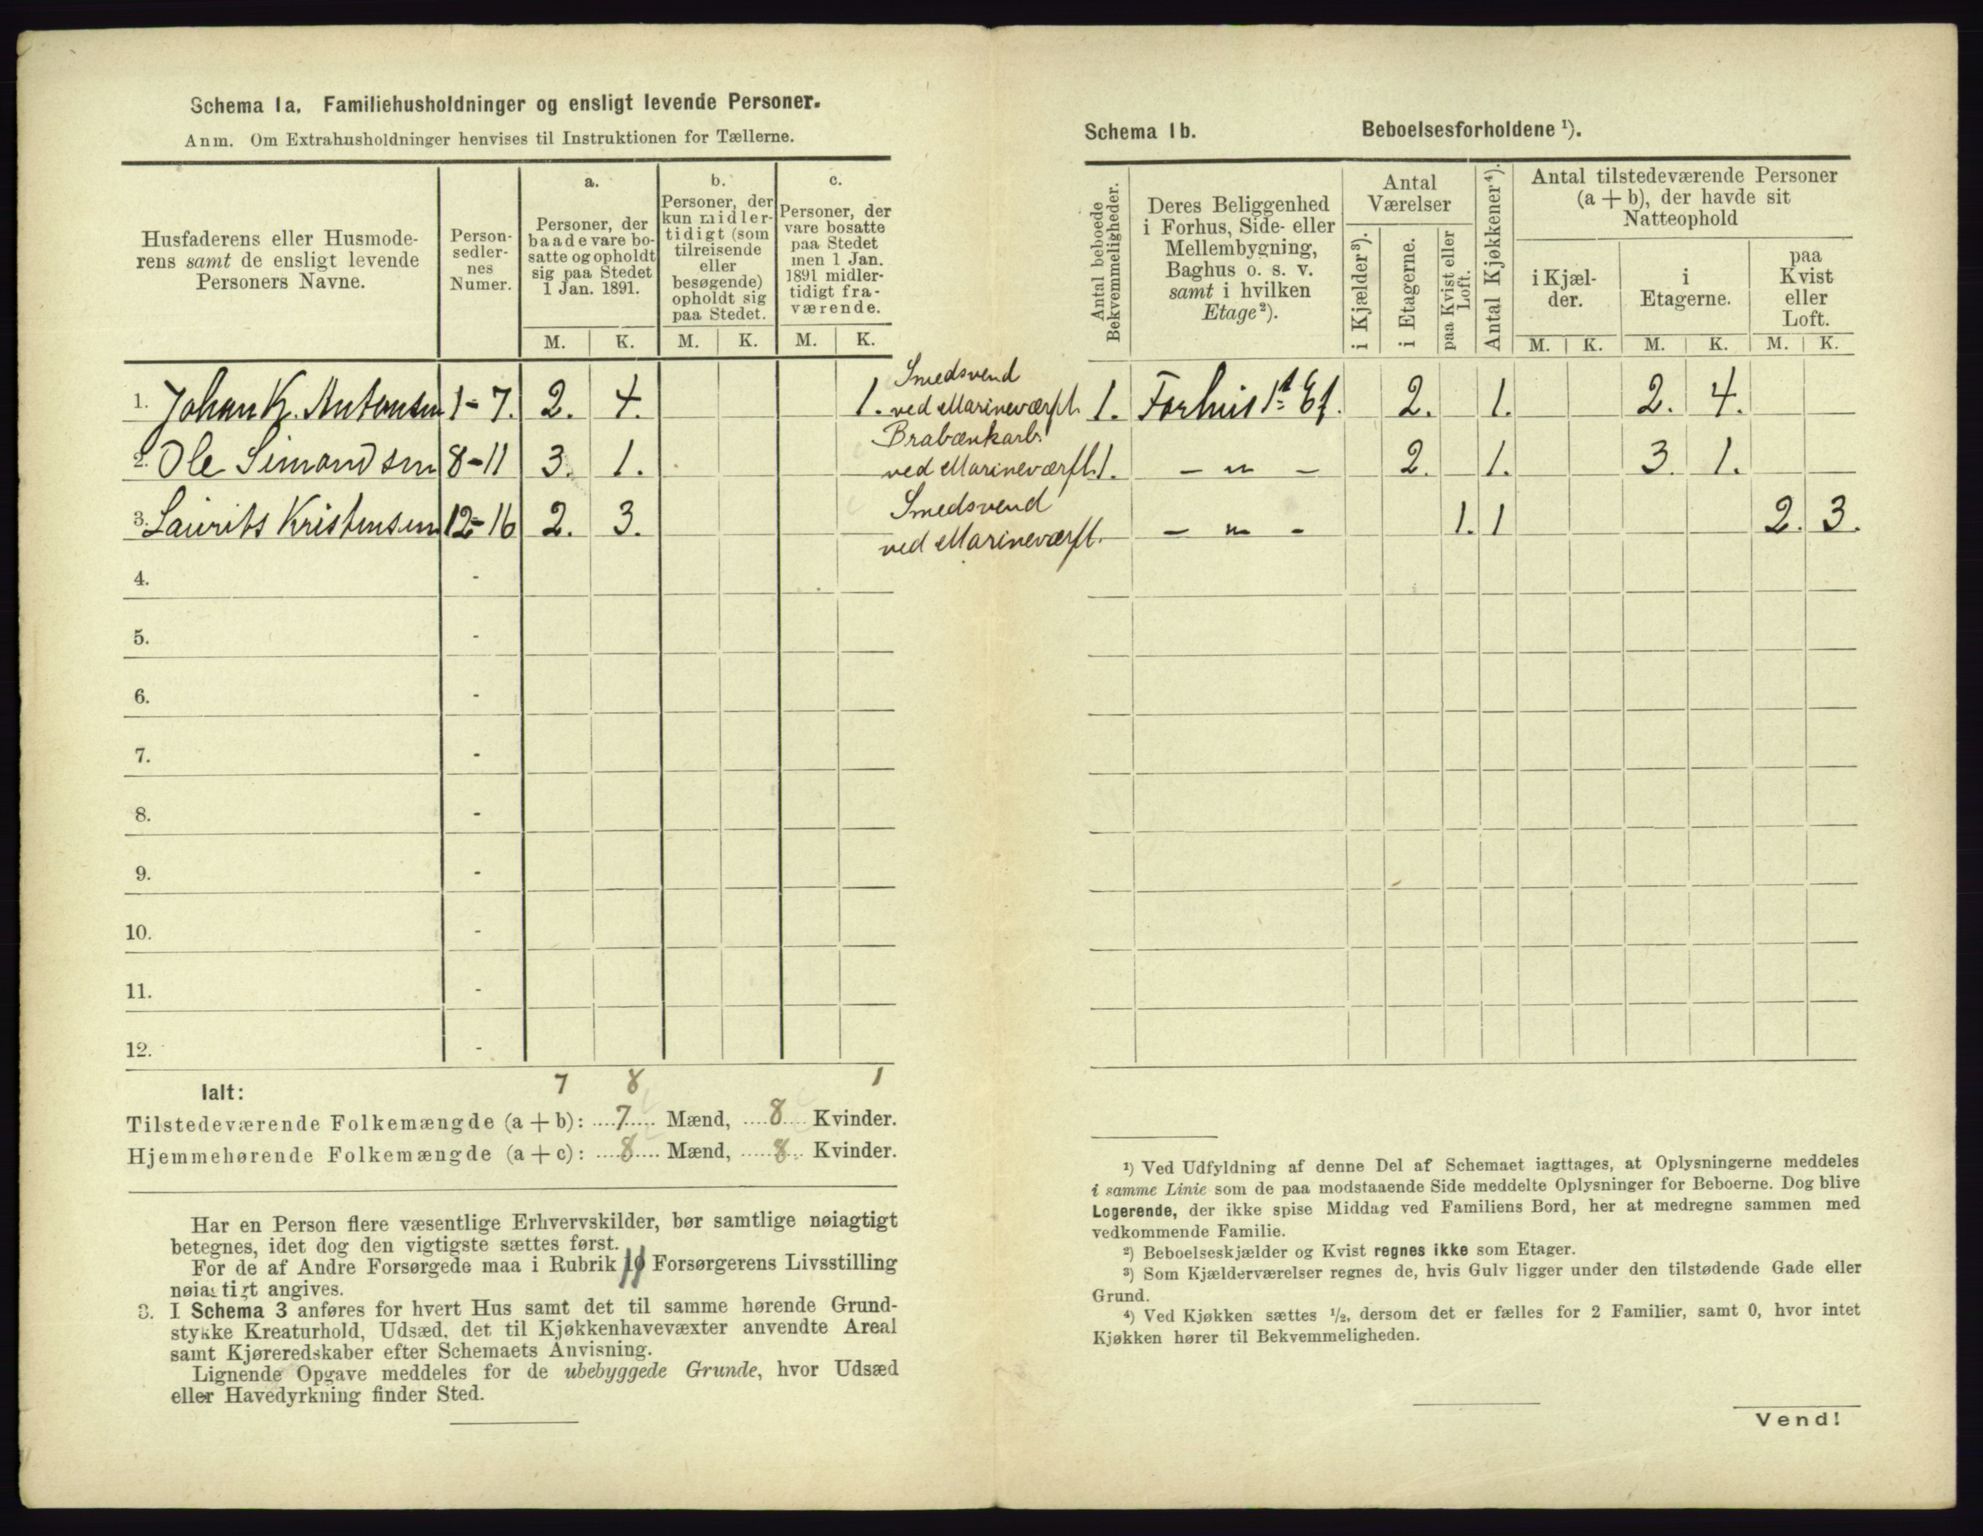 Schema 1a. Familiehusholdninger og ensligt levende Personer.
Anm. Om Extrahusholdninger henvises til Instruktionen for Tællerne.
Husfaderens eller Husmode-
rens samt de ensligt levende
Personers Navne.
Person-
sedler-
nes
Numer.
a.
Personer, der
baade vare bo-
satte og opholdt
sig paa Stedet
1 Jan. 1891.
b.
Personer, der
kun midler-
tidigt (som
tilreisende
eller
besøgende)
opholdt sig
paa Stedet.
c.
Personer, der
vare bosatte
paa Stedet
men 1 Jan.
1891 midler-
tidigt fra-
værende.
M. K. M. K. M. K.
1. Johan K. Antonsen 1-7. 2. 4. 1. Smedsvend
ved Marineværft.
2. Ole Simondsen 8-11 3. 1. Brabænkarb.
ved Marineværft.
3. Laurits Kristensen 12-16 2. 3. Smedsvend
ved Marineværft.
4. -
5. -
6. -
7. -
8. -
9. -
10. -
11. -
12. -
Ialt: 7 8 1
Tilstedeværende Folkemængde (a + b): 7 Mænd, 8 Kvinder.
Hjemmehørende Folkemængde (a + c): 8 Mænd, 8 Kvinder.
Har en Person flere væsentlige Erhvervskilder, bør samtlige nøiagtigt
betegnes, idet dog den vigtigste sættes først.
For de af Andre Forsørgede maa i Rubrik 11 Forsørgerens Livsstilling
nøiagtigt angives.
3. I Schema 3 anføres for hvert Hus samt det til samme hørende Grund-
stykke Kreaturhold, Udsæd, det til Kjøkkenhavevæxter anvendte Areal
samt Kjøreredskaber efter Schemaets Anvisning.
Lignende Opgave meddeles for de ubebyggede Grunde, hvor Udsæd
eller Havedyrkning finder Sted.
Schema 1b. Beboelsesforholdene ¹).
Antal beboede
Bekvemmeligheder.
Deres Beliggenhed
i Forhus, Side- eller
Mellembygning,
Baghus o. s. v.
samt i hvilken
Etage²).
Antal
Værelser
i Kjælder³).
i Etagerne.
paa Kvist eller
Loft.
Antal Kjøkkener⁴).
Antal tilstedeværende Personer
(a + b), der havde sit
Natteophold
i Kjæl-
der.
i
Etagerne.
paa
Kvist
eller
Loft.
M. K. M. K. M. K.
1. Forhus 1ste Et. 2. 1. 2. 4.
1. - „ - 2. 1. 3. 1.
- „ - 1. 1 2. 3.
¹) Ved Udfyldning af denne Del af Schemaet iagttages, at Oplysningerne meddeles
i samme Linie som de paa modstaaende Side meddelte Oplysninger for Beboerne. Dog blive
Logerende, der ikke spise Middag ved Familiens Bord, her at medregne sammen med
vedkommende Familie.
²) Beboelseskjælder og Kvist regnes ikke som Etager.
³) Som Kjælderværelser regnes de, hvis Gulv ligger under den tilstødende Gade eller
Grund.
⁴) Ved Kjøkken sættes ½, dersom det er fælles for 2 Familier, samt 0, hvor intet
Kjøkken hører til Bekvemmeligheden.
Vend!